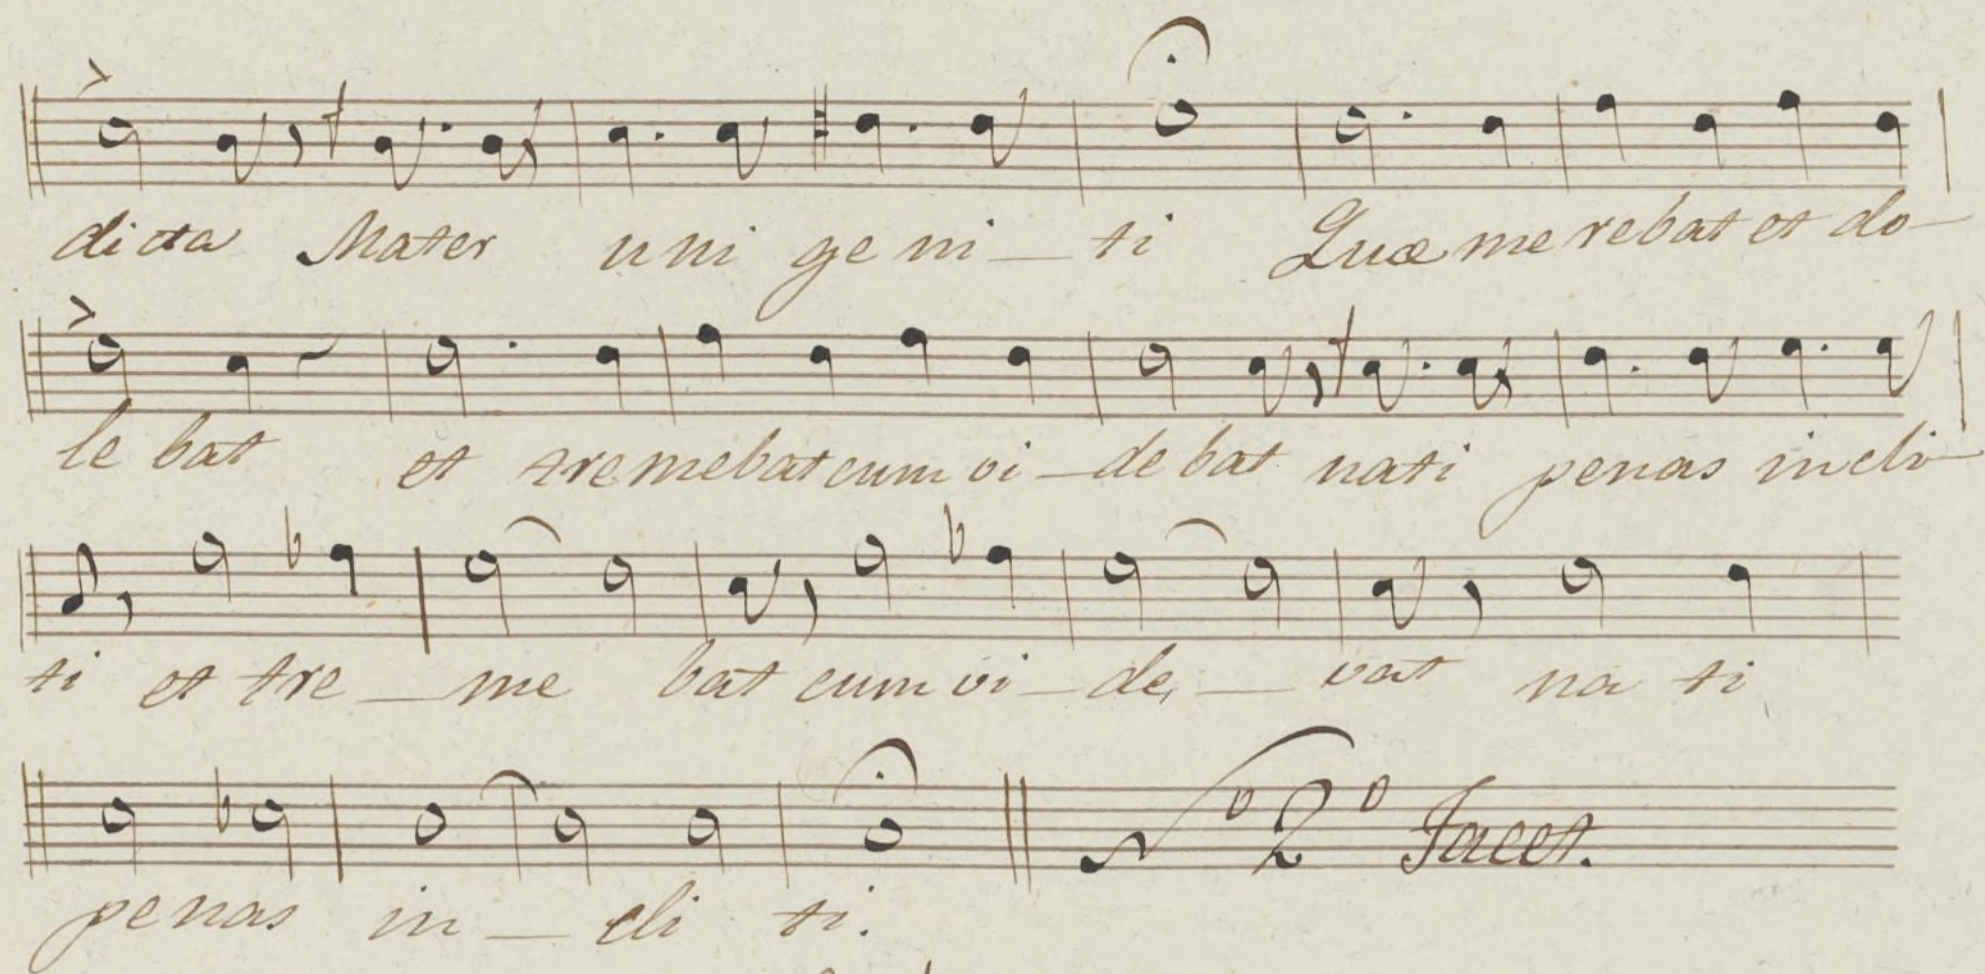 dicta Mater uni geni — ti Quæ merebat et do —
le bat et tremebat cum vi — debat nati penas incli —
ti et tre — me bat cum vi — de, — vat na ti
N.º 2º Tacet.
penas in — cli ti.